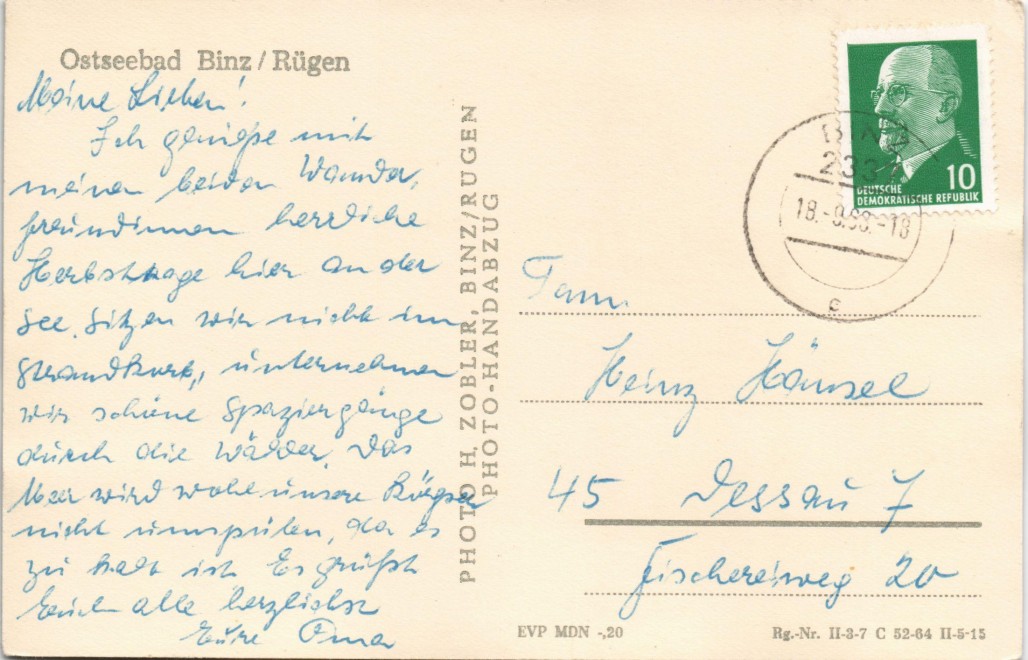 Ostseebad Binz / Rügen
Meine Lieben!
Ich genieße mit
meinen beiden Wander,
freundinnen herrliche
Herbsttage hier an der
See. Sitzen wir nicht im
Strandkorb, unternehmen
wir schöne Spaziergänge
durch die Wälder. Das
Meer wird wohl unsere Körper
nicht umspülen, da es
zu kalt ist. Es grüßt
Euch alle herzlichst
Eure Oma
PHOTO H. ZOBLER, BINZ/RÜGEN
PHOTO-HANDABZUG
BINZ
2337
18.-9.68.-18
e
10
DEUTSCHE
DEMOKRATISCHE REPUBLIK
Fam.
Heinz Hänsel
45 Dessau 7
Fischereiweg 20
EVP MDN -,20
Rg.-Nr. II-3-7 C 52-64 II-5-15